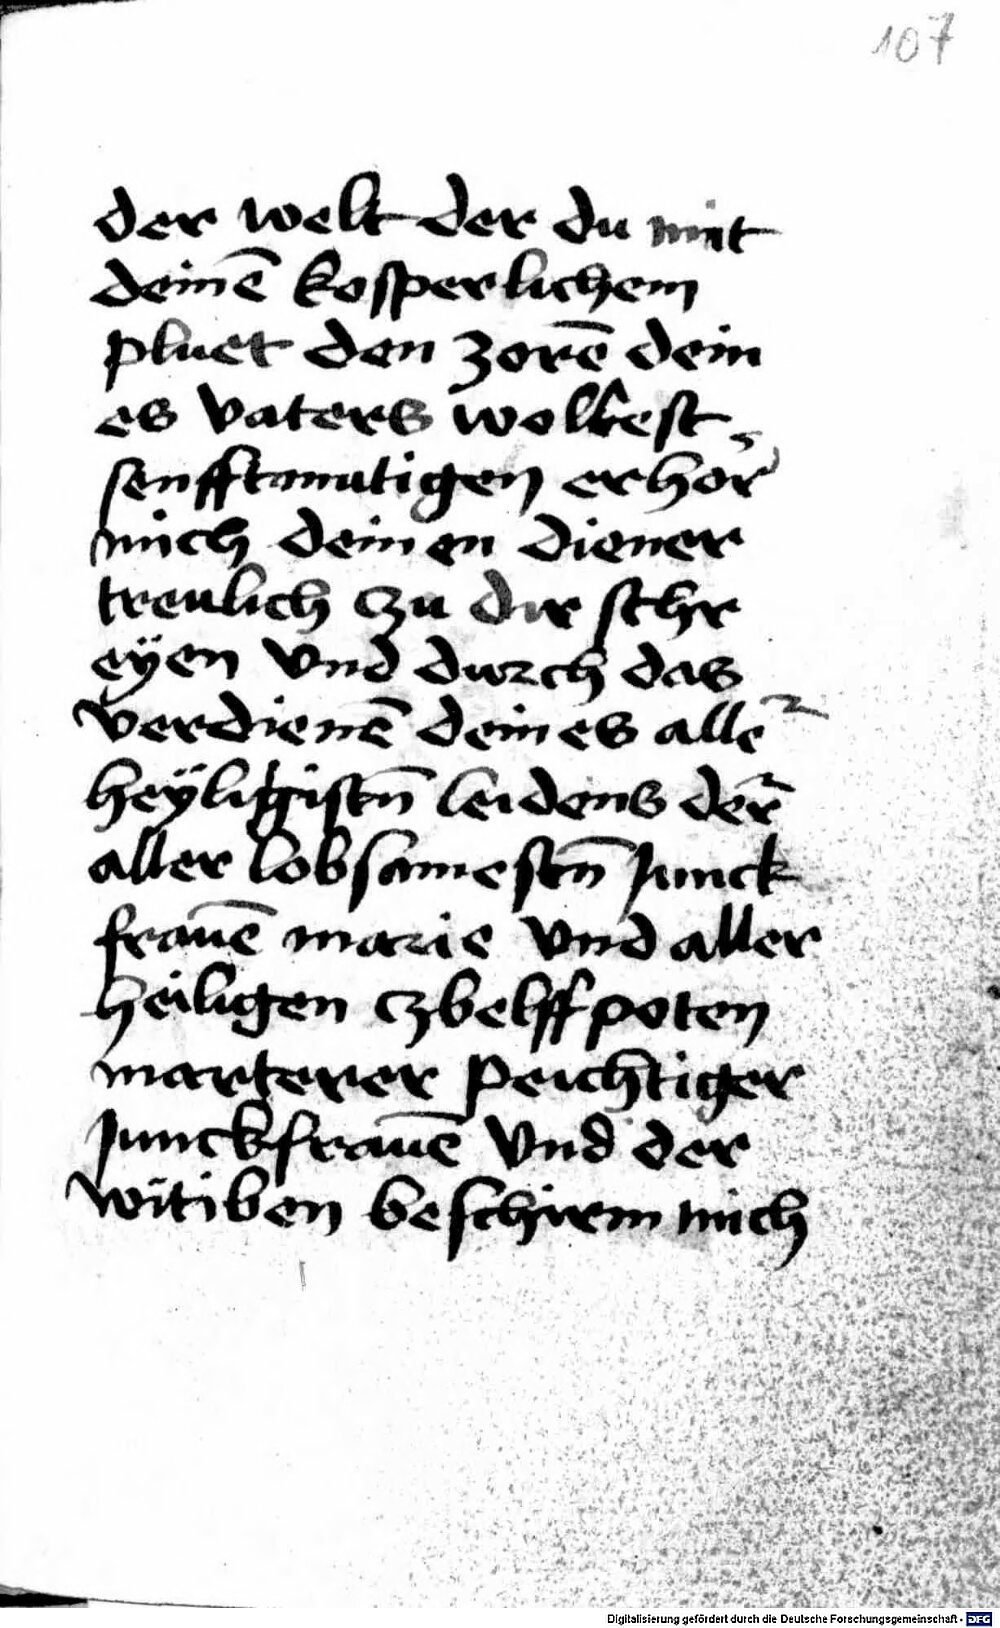 107
der welt der du mit
deinē kosperlichem
pluet den zorē dein
es vaters wolkest
senfftmutigen erhor
mich deinen diener
treulich czu dir schr
eÿen vnd durch das
verdienē deines alle
heÿligistn̄ leidens der
aller lobsamestn̄ Junck
frauē marie vnd aller
heiligen czbelffpoten
marterer peichtiger
Junckfrauē vnd der
witiben beschirm mich
Digitalisierung gefördert durch die Deutsche Forschungsgemeinschaft - DFG